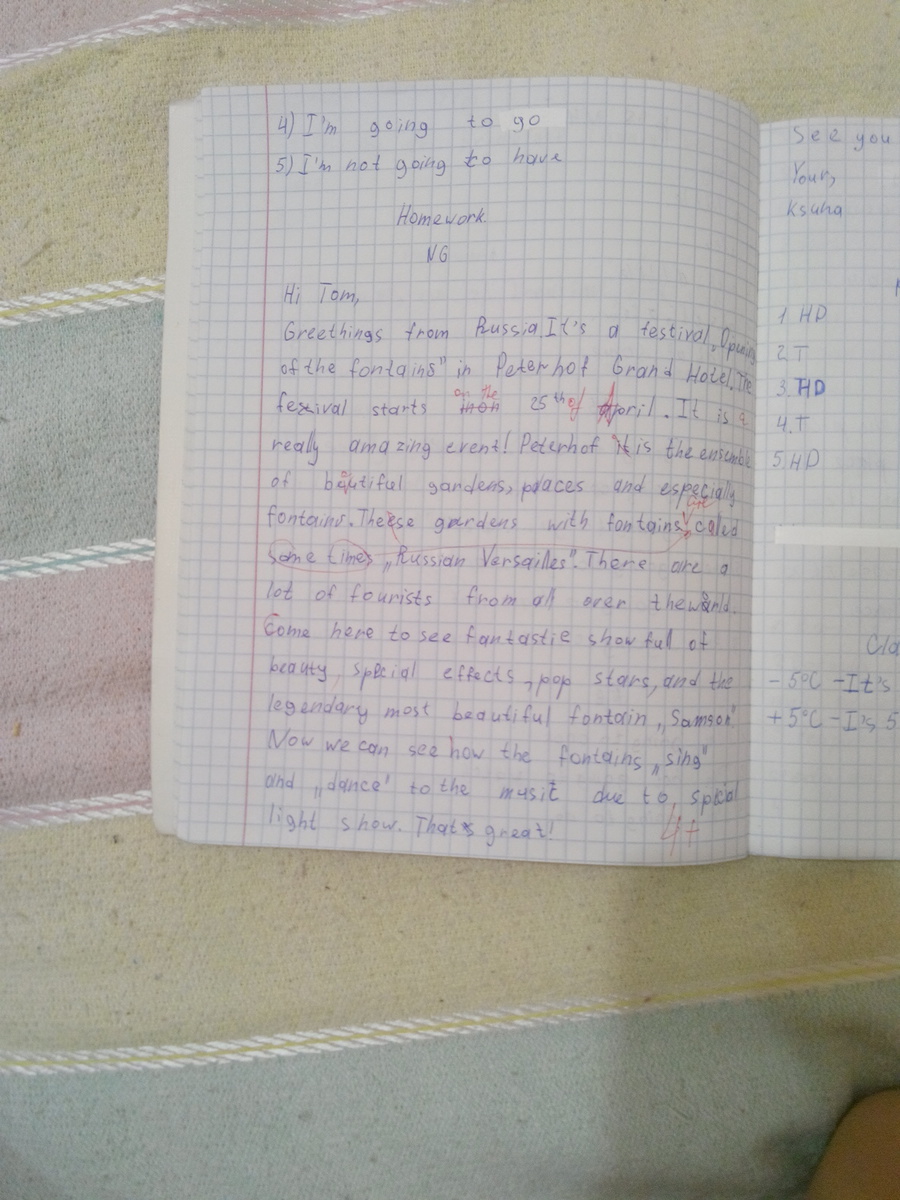 4) I'm going to go
5) I'm not going to have
Homework
N6
Hi Tom,
Greethings from Russia. It's a festival „Opening
of the fontains" in Peterhof Grand Hotel. The
festival starts on the 25th of April. It is a
really amazing event! Peterhof is the ensemble
of beautiful gardens, places and especially
fontains. These gardens with fontains are called
some times „Russian Versailles". There are a
lot of tourists from all over the world.
Come here to see fantastic show full of
beauty, special effects, pop stars, and the
legendary most beautiful fontain „Samson"
Now we can see how the fontains „sing"
and „dance" to the music due to spical
light show. That's great!
4+
See you
Your,
Ksuha
1. HD
2. T
3. HD
4. T
5. HD
Cla
- 5°C - It's
+ 5°C - I's 5